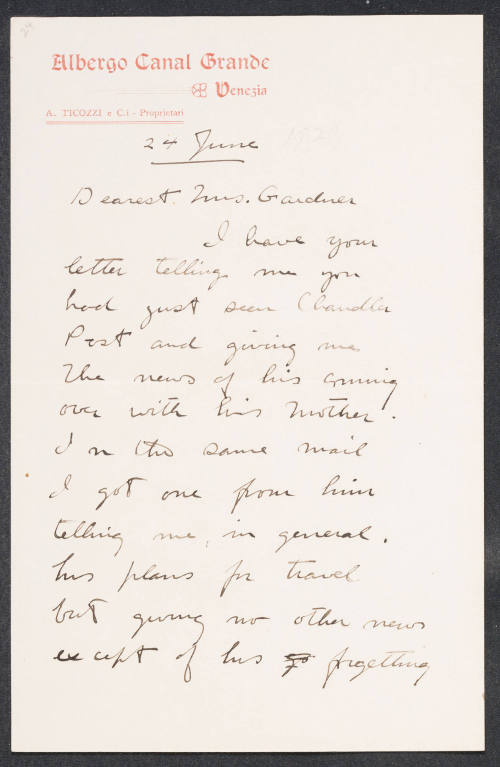 Albergo Canal Grande
Venezia
A. TICOZZI e C.i - Proprietari
24 June
Dearest Mrs. Gardner
I have your
letter telling me you
had just seen Chandler
Post and giving me
the news of his coming
over with his Mother.
In the same mail
I got one from him
telling me, in general,
his plans for travel
but giving no other news
except of his forgetting